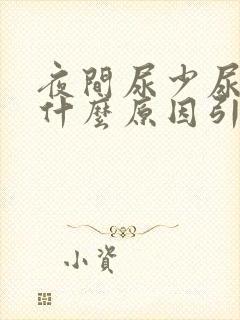 夜間尿少尿
什麼原因引
小資